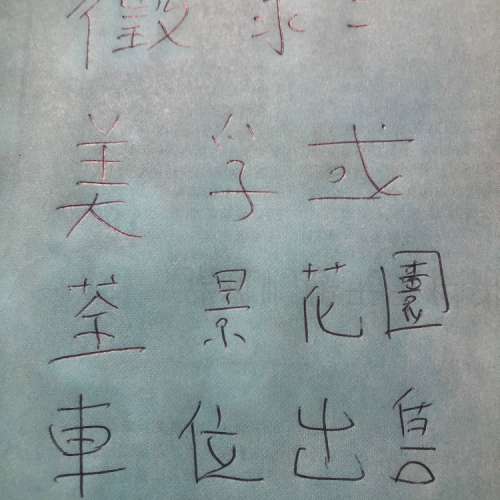 徵求：
美孚或
荃景花園
車位出售